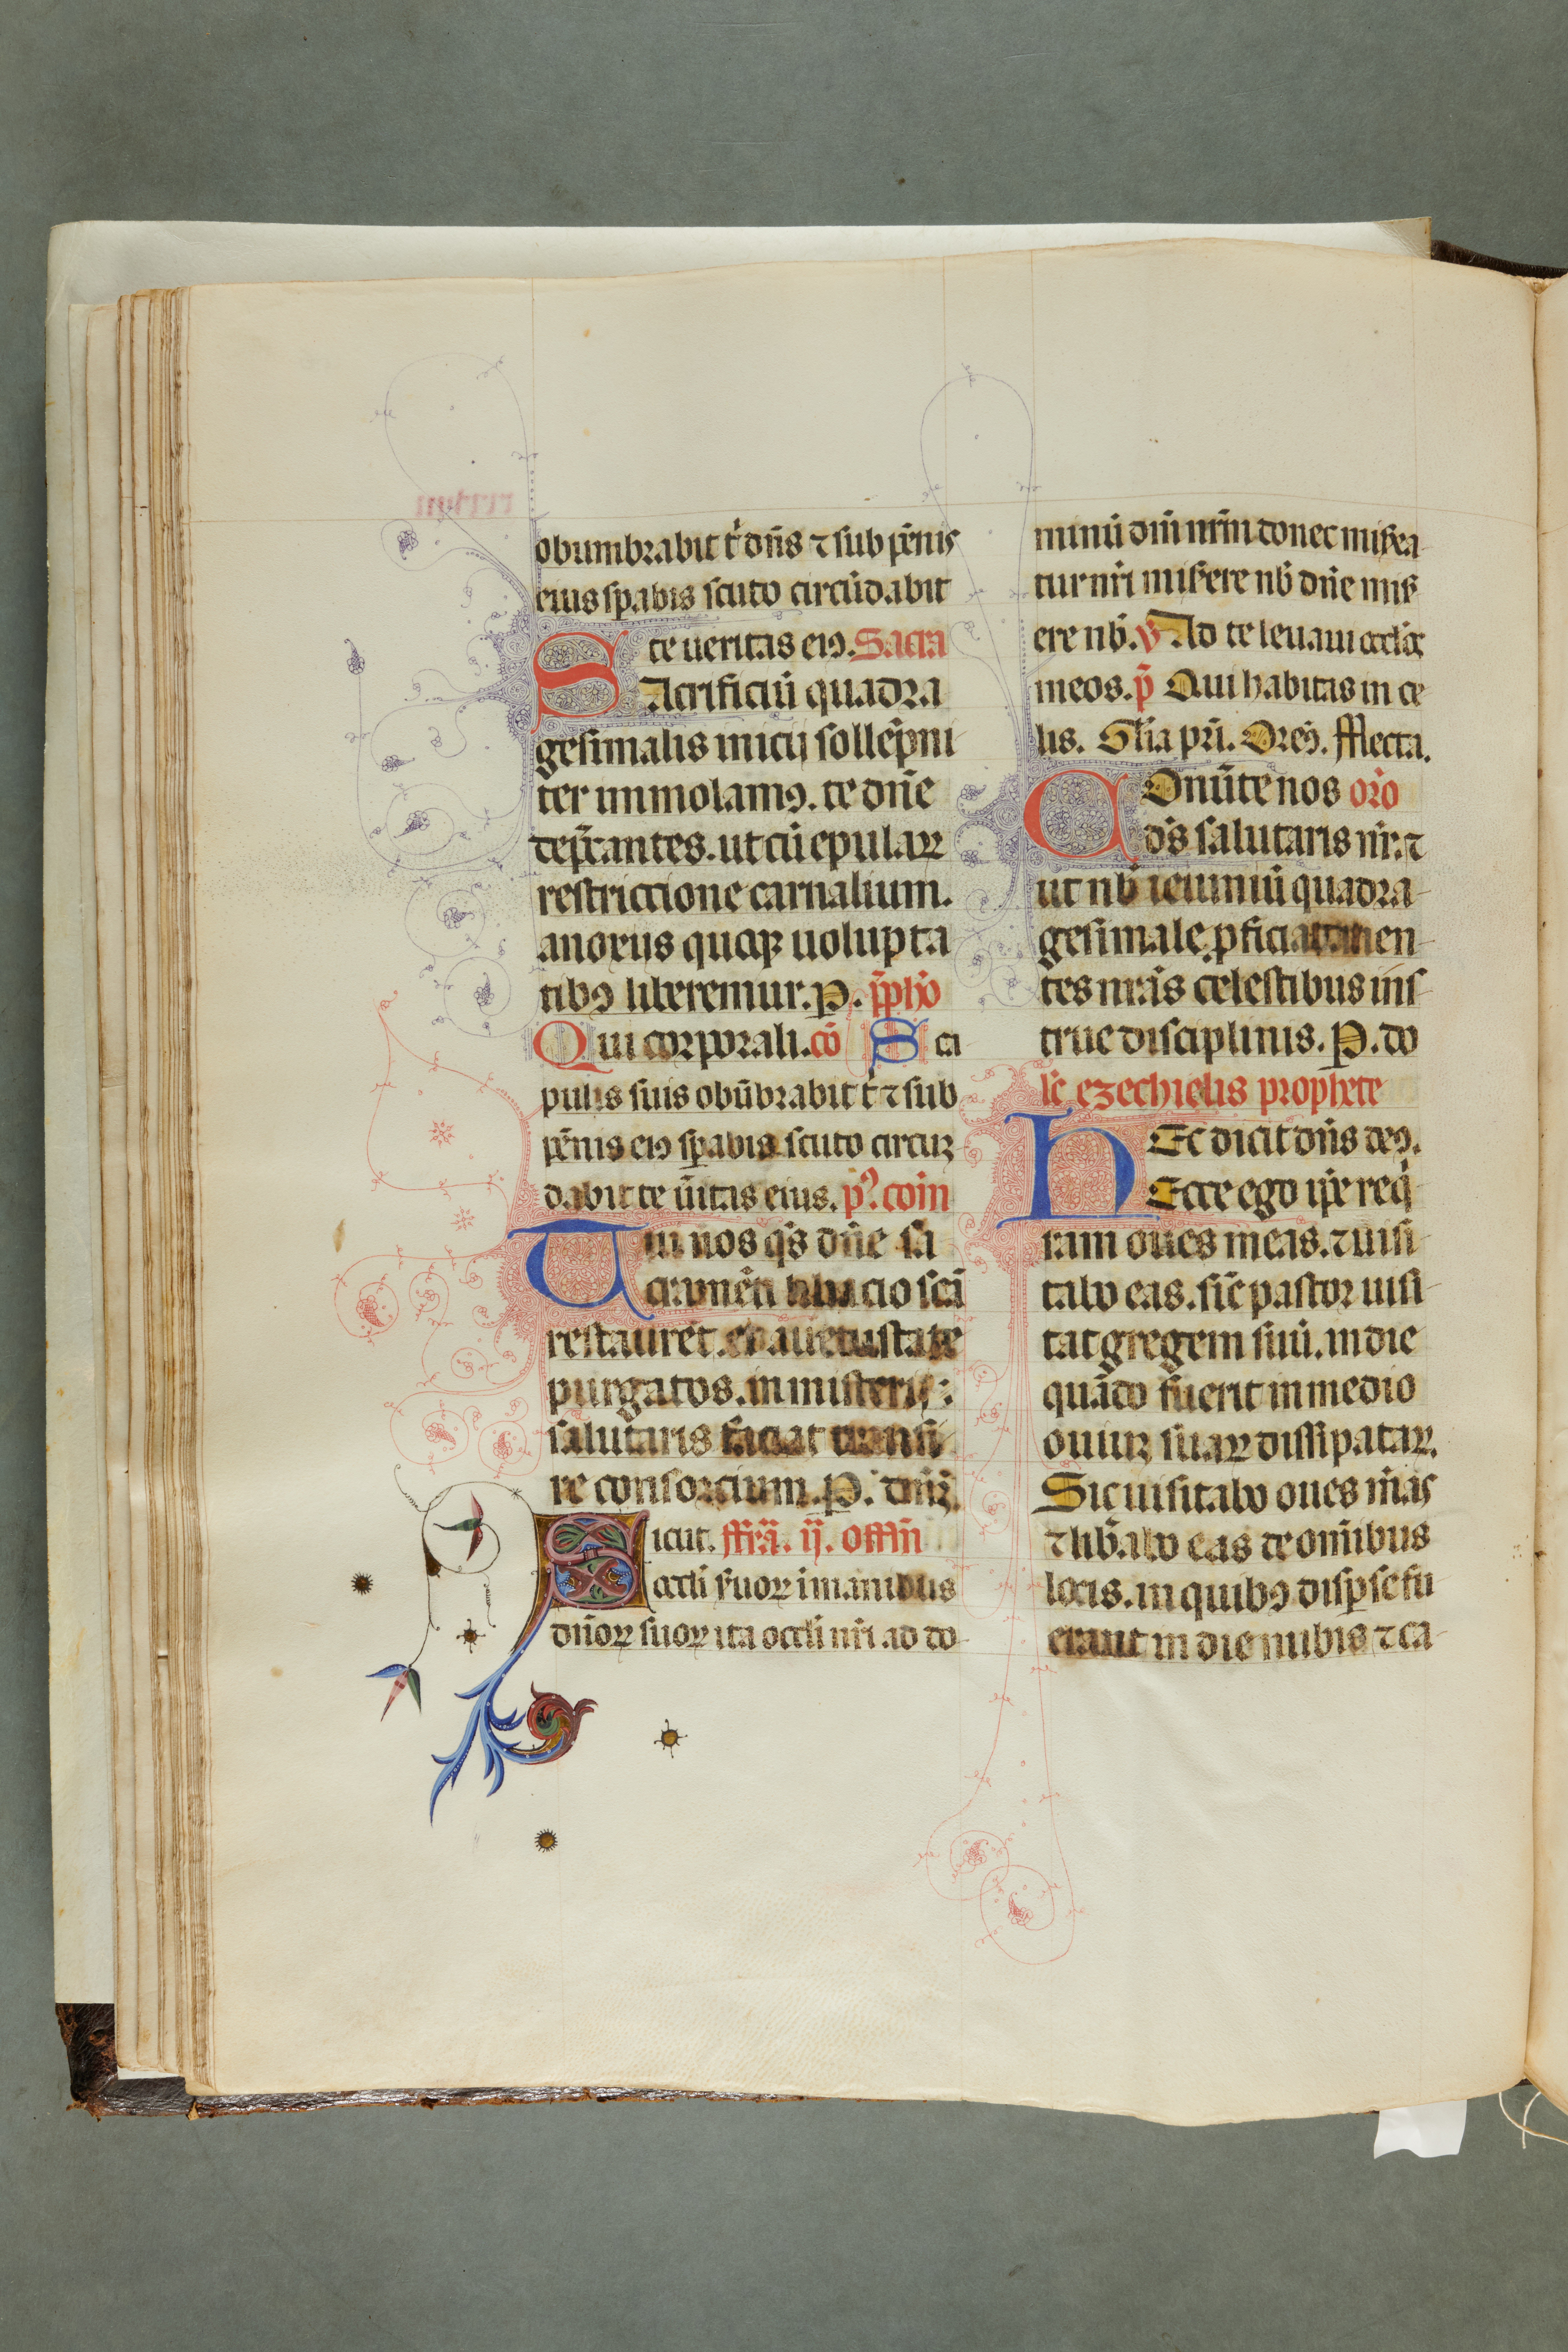 obumbrabit t̾ dn̄s ⁊ sub pēnis
eius sp̱abis scuto circūdabit
te ueritas eiꝰ. Sacra
SAcrificiū quadra
gesimalis inicij sollēpni
ter immolamꝰ. te dn̄e
dep̄cantes. ut cū epulaꝝ
restriccione carnalium.
a noxijs quoꝗ uolupta
tibꝰ liberemur. P. p̄pho
Qui corporali. cō Sca
pulis suis obūbrabit t̾ ⁊ sub
pēnis eiꝰ sp̱abis scuto circuʒ
dabit te ūitas eius. pꝰ. coin̄
Tui nos qs̄ dn̄e sa
cramēti libacio sc̄a
restauret. et a uetustate
purgatos. in misterij:
salutaris faciat transi
re consorcium. P. dn̄ʒ.
Sicut. ffr̄a. ij. offm̄
occli suoꝝ i manibus
dn̄oꝝ suoꝝ ita occli nr̄i ad do-
minū dm̄ nr̄m donec misea-
tur nr̄i misere nb̄ dn̄e mis
ere nb̄. v̄ Ad te leuaui occl̄os
meos. p̄ Qui habitas in ce
lis. Gl̄ia pr̄i. Oreꝰ. fflecta.
COnūte nos oro
ds̄ salutaris nr̄. ⁊
ut nb̄ ieiuniū quadra-
gesimale. ꝓficiat. men-
tes nr̄as celestibus ins-
true disciplinis. P. do
lc̄ ezechielis prophete
HEc dicit dn̄s deꝰ.
Ecce ego ip̄e req̇
ram oues meas. ⁊ uisi-
tabo eas. sic̄ pastor uisi-
tat gregem suū. in die
quādo fuerit in medio
ouiuʒ suaꝝ dissipataꝝ.
Sic uisitabo oues m̄as
⁊ lib̄abo eas de om̄ibus
locis. in quibꝰ disp̱se fu
erant in die nubis ⁊ ca-